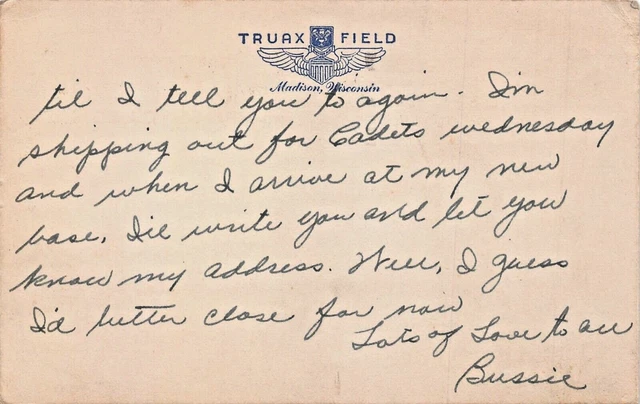 TRUAX FIELD
Madison, Wisconsin
til I tell you to again. I'm
shipping out for Cadets wednesday
and when I arrive at my new
base, I'll write you and let you
know my address. Well, I guess
I'd better close for now
Lots of Love to all
Bussie